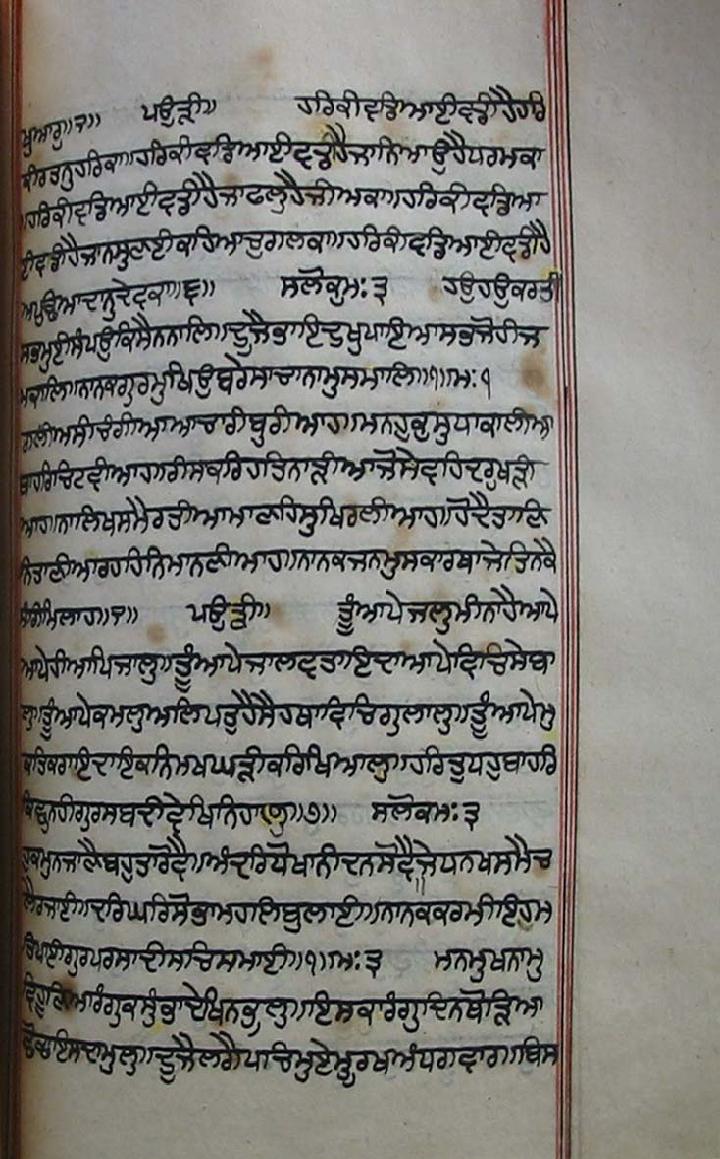 ਖੁਆਰੁ॥੨॥ ਪਉੜੀ॥ ਹਰਿਕੀਵਡਿਆਈਵਡੀਹੈਹਰਿ
ਕੀਰਤਨੁਹਰਿਕਾ॥ਹਰਿਕੀਵਡਿਆਈਵਡੀਹੈਜਾਨਿਆਉਹੈਧਰਮਕਾ
॥ਹਰਿਕੀਵਡਿਆਈਵਡੀਹੈਜਾਫਲੁਹੈਜੀਅਕਾ॥ਹਰਿਕੀਵਡਿਆ
ਈਵਡੀਹੈਜਾਨਸੁਣਈਕਹਿਆਚੁਗਲਕਾ॥ਹਰਿਕੀਵਡਿਆਈਵਡੀਹੈ
ਅਪੁਛਿਆਦਾਨੁਦੇਵਕਾ॥੬॥ ਸਲੋਕੁਮਃ੩ ਹਉਹਉਕਰਤੀ
ਸਭਮੁਈਸੰਪਉਕਿਸੈਨਨਾਲਿ॥ਦੂਜੈਭਾਇਦੁਖੁਪਾਇਆਸਭਜੋਹੀਜ
ਮਕਾਲਿ॥ਨਾਨਕਗੁਰਮੁਖਿਉਬਰੇਸਾਚਾਨਾਮੁਸਮਾਲਿ॥੧॥ਮਃ੧
ਗਲੀਅਸੀਚੰਗੀਆਆਚਾਰੀਬੁਰੀਆਹ॥ਮਨਹੁਕੁਸੁਧਾਕਾਲੀਆ
ਬਾਹਰਿਚਿਟਵੀਆਹ॥ਰੀਸਕਰਿਹਤਿਨਾੜੀਆਜੋਸੇਵਹਿਦਰੁਖੜੀ
ਆਹ॥ਨਾਲਿਖਸਮੈਰਤੀਆਮਾਣਹਿਸੁਖਿਰਲੀਆਹ॥ਹੋਦੈਤਾਣਿ
ਨਿਤਾਣੀਆਰਹਹਿਨਿਮਾਨਣੀਆਹ॥ਨਾਨਕਜਨਮੁਸਕਾਰਥਾਜੇਤਿਨਕੈ
ਸੰਗਿਮਿਲਾਹ॥੨॥ ਪਉੜੀ॥ ਤੂੰਆਪੇਜਲੁਮੀਨਾਹੈਆਪੇ
ਆਪੇਹੀਆਪਿਜਾਲੁ॥ਤੂੰਆਪੇਜਾਲਵਤਾਇਦਾਆਪੇਵਿਚਿਸੇਬਾ
ਲੁ॥ਤੂੰਆਪੇਕਮਲੁਅਲਿਪਤੁਹੈਸੈਹਥਾਵਿਚਿਗੁਲਾਲੁ॥ਤੂੰਆਪੇਮੁ
ਕਤਿਕਰਾਇਦਾਇਕਨਿਮਖਘੜੀਕਰਿਖਿਆਲੁ॥ਹਰਿਤੁਧਹੁਬਾਹਰਿ
ਕਿਛੁਨਹੀਗੁਰਸਬਦੀਵੇਖਿਨਿਹਾਲੁ॥੭॥ ਸਲੋਕਮਃ੩
ਹੁਕਮੁਨਜਾਣੈਬਹੁਤਾਰੋਵੈ॥ਅੰਦਰਿਧੋਖਾਨੀਦਨਸੋਵੈ॥ਜੇਧਨਖਸਮੈਚ
ਲੈਰਜਾਈ॥ਦਰਿਘਰਿਸੋਭਾਮਹਲਿਬੁਲਾਈ॥ਨਾਨਕਕਰਮੀਇਹਮ
ਤਿਪਾਈਗੁਰਪਰਸਾਦੀਸਚਿਸਮਾਈ॥੧॥ਮਃ੩ ਮਨਮੁਖਨਾਮੁ
ਵਿਹੂਣਿਆਰੰਗੁਕਸੁੰਭਾਦੇਖਿਨਭੁਲੁ॥ਇਸਕਾਰੰਗੁਦਿਨਥੋੜਿਆ
ਛੋਛਾਇਸਦਾਮੁਲੁ॥ਦੂਜੈਲਗੈਪਚਿਮੁਏਮੂਰਖਅੰਧਗਵਾਰ॥ਬਿਸ